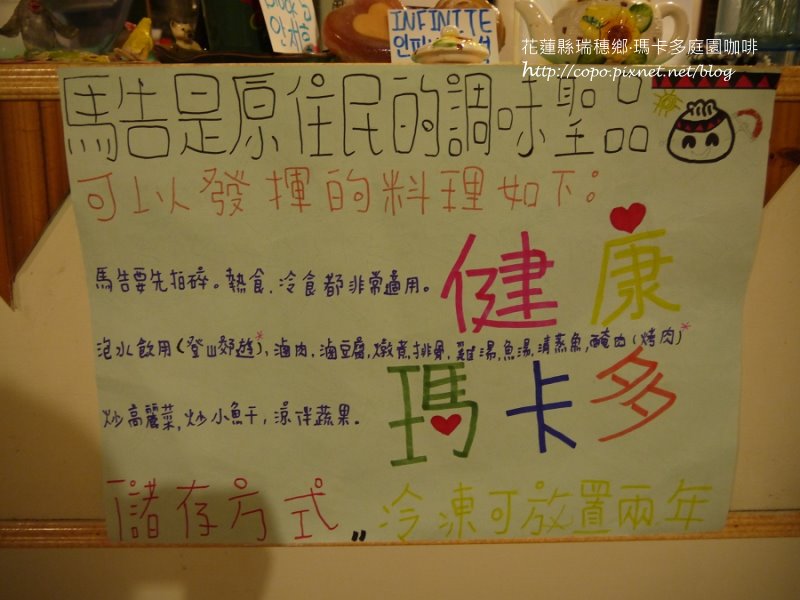 INFINITE
花蓮縣瑞穗鄉‧瑪卡多庭園咖啡
http://copo.pixnet.net/blog
馬告是原住民的調味聖品
可以發揮的料理如下:
健康
馬告要先拍碎。熱食、冷食都非常適用。
泡水飲用(登山郊遊*),滷肉,滷豆腐,燉煮,排骨,雞湯,魚湯,清蒸魚,醃肉(烤肉)*
瑪卡多
炒高麗菜,炒小魚干,涼拌蔬果。
儲存方式,,冷凍可放置兩年